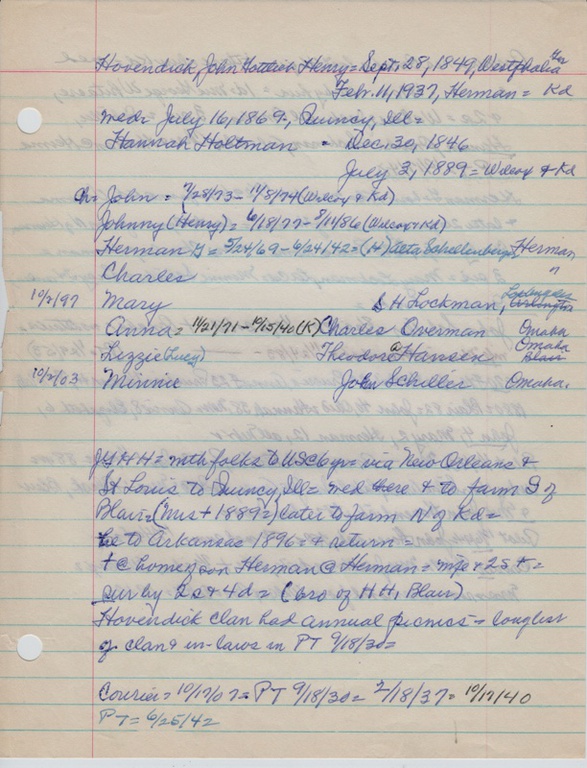 Hovendick, John Gottlieb Henry = Sept. 28, 1849, Westphalia Ger
Feb. 11, 1937, Herman = Kd
med = July 16, 1869 -, Quincy, Ill =
Hannah Holtman - Dec. 30, 1846
July 3, 1889 = Wilcox & Kd
Ch = John = 7/28/73 - 11/8/74 (Wilcox & Kd)
Johnny (Henry) = 6/18/77 - 8/11/86 (Wilcox & Kd)
Herman G = 5/24/69 - 6/24/42 = (H) Aleta Schellenberg, Herman
Charles "
10/2/97 Mary S H Lockman, Arlington
Anna = 11/21/71 - 10/15/40 (K) Charles Overman Omaha
Lizzie (Lucy) Theodore Hansen Omaha Blair
10/2/03 Minnie John Schiller Omaha.
JGHH = with folks to US @ 6 yr = via New Orleans &
St Louis to Quincy, Ill = med there & to farm S of
Blair = (Mrs + 1889 =) later to farm N of Kd =
to Arkansas 1896 = & return =
+ @ home son Herman @ Herman = & 2s + =
sur by 2s & 4d = (bro of H H, Blair)
Hovendick clan had annual picnics = longlist
of clan & in-laws in PT 9/18/30 =
Courier = 10/17/07 = PT 9/18/30 = 2/18/37 = 10/17/40
PT = 6/25/42